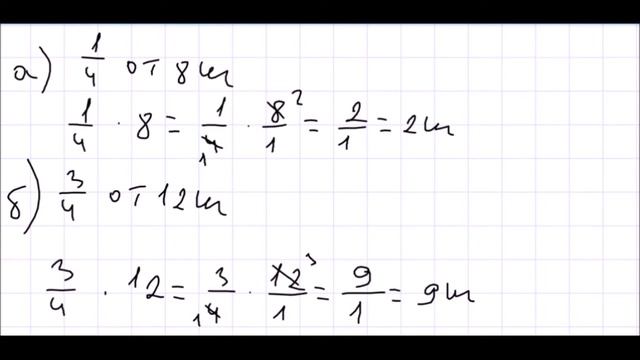 а) 1/4 от 8 м
1/4 · 8 = 1/4 1 · 8 2/1 = 2/1 = 2 м
б) 3/4 от 12 м
3/4 · 12 = 3/4 1 · 12 3/1 = 9/1 = 9 м